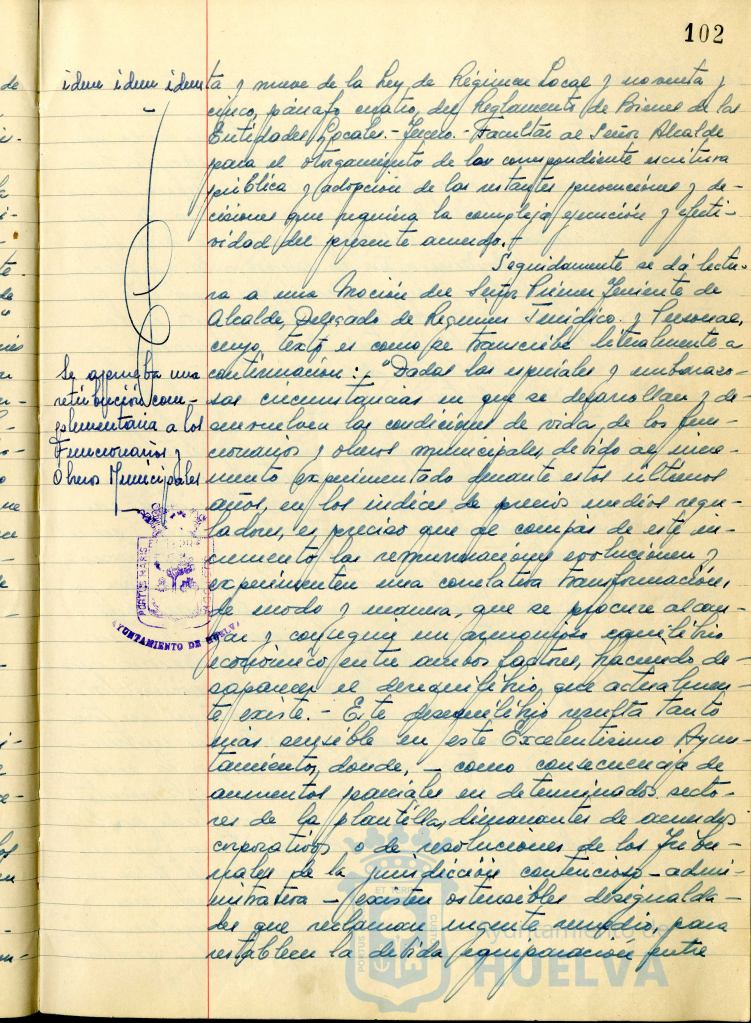 102
idem idem idem
ta y nueve de la Ley de Régimen Local y noventa y
cinco, párrafo cuatro, del Reglamento de Bienes de las
Entidades Locales.- Tercero.- Facultar al Señor Alcalde
para el otorgamiento de la correspondiente escritura
pública y adopción de las restantes prevenciones y de-
cisiones que requiera la completa ejecución y efecti-
vidad del presente acuerdo.-
Seguidamente se dá lectu-
ra a una Moción del Señor Primer Teniente de
Alcalde, Delegado de Régimen Jurídico y Personal,
cuyo texto es como se transcribe literalmente a
continuación: "Dadas las especiales y embarazo-
sas circunstancias en que se desarrollan y de-
senvuelven las condiciones de vida, de los fun-
cionarios y obreros municipales, debido al incre-
mento experimentado durante estos últimos
años, en los índices de precios medios regu-
ladores, es preciso que al compás de este in-
cremento las remuneraciones evolucionen y
experimenten una correlativa transformación,
de modo y manera, que se procure alcan-
zar y conseguir un armonioso equilibrio
económico entre ambos factores, haciendo de-
saparecer el desequilibrio, que actualmen-
te existe.- Este desequilibrio resulta tanto
más sensible en este Excelentísimo Ayun-
tamiento, donde, - como consecuencia de
aumentos parciales en determinados secto-
res de la plantilla, dimanantes de acuerdos
corporativos o de resoluciones de los Tribu-
nales de la jurisdicción contencioso-admi-
nistrativa - existen ostensibles desigualda-
des que reclaman urgente remedio, para
restablecer la debida equiparación entre
Se aprueba una
retribución com-
plementaria a los
Funcionarios y
Obreros Municipales
PORTUS MARIS
AYUNTAMIENTO DE HUELVA
Ayuntamiento de
HUELVA